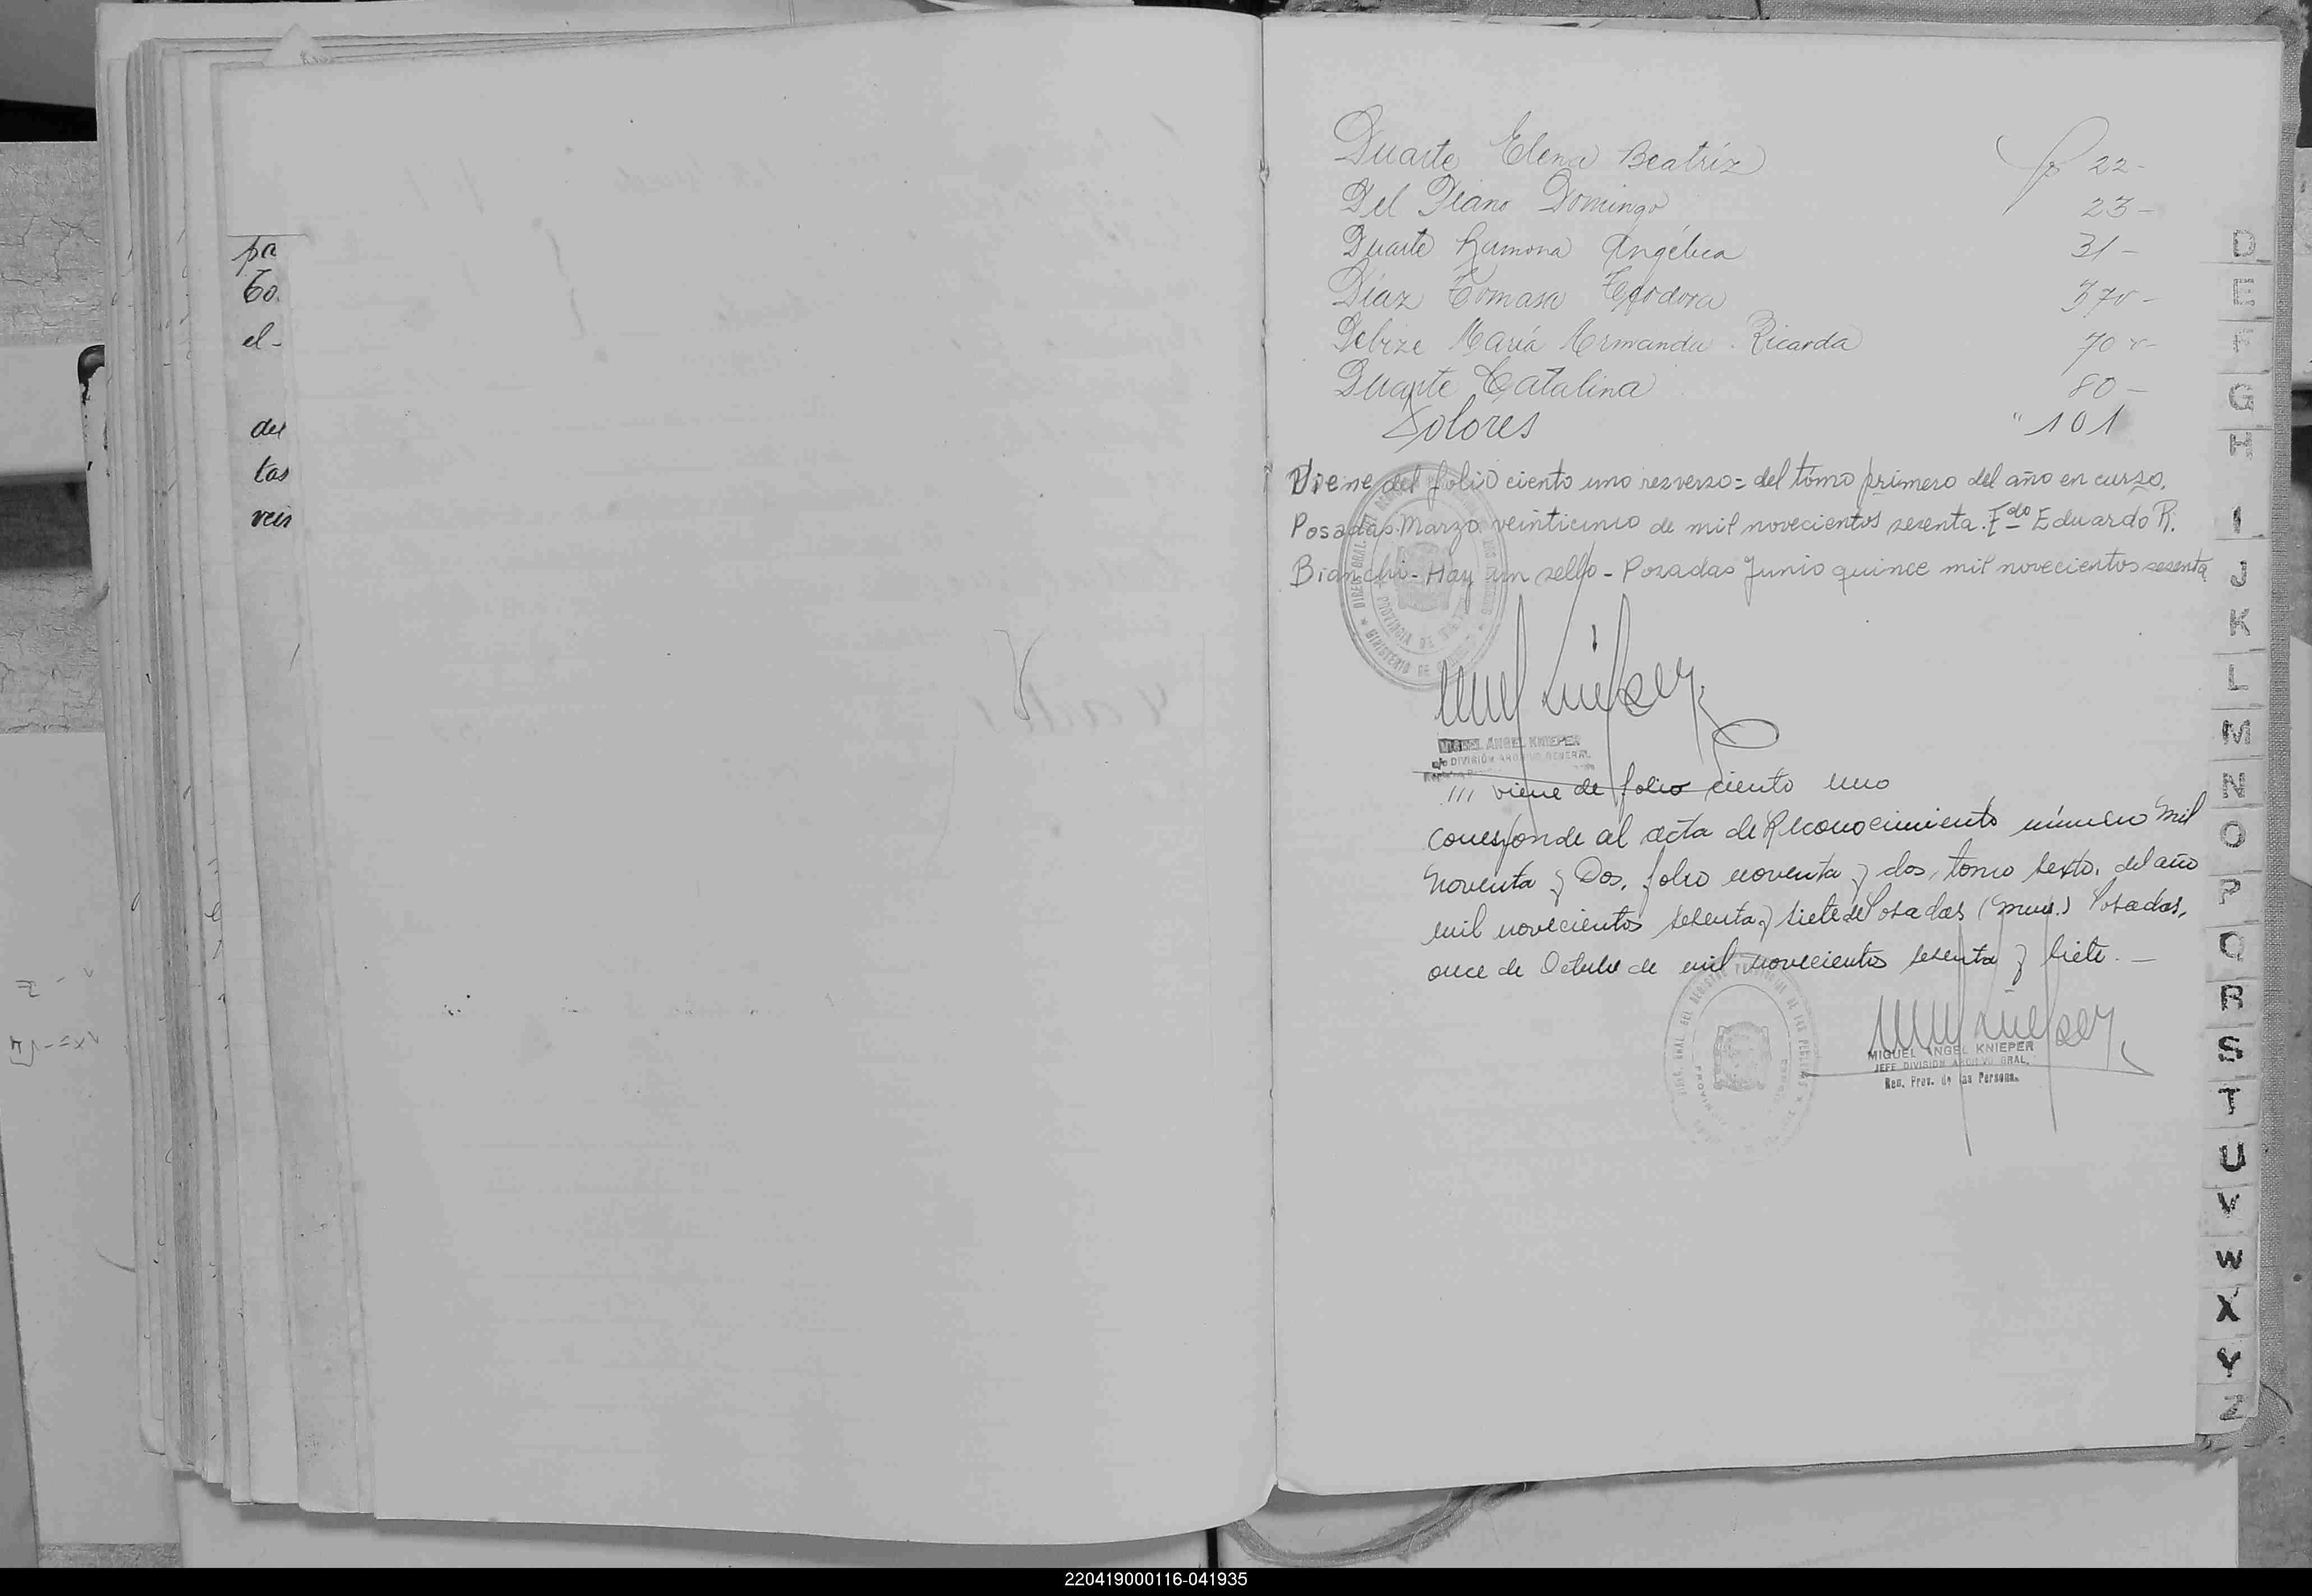 pa
to
el-
del
tas
veis
Duarte Elena Beatríz fo 22-
Del Piano Domingo 23-
Duarte Ramona Angélica 31-
Díaz Tomasa Teodora 37v-
Debize María Armanda Ricarda 70v-
Duarte Catalina 80-
Dolores " 101
Viene del folio ciento uno resverso= del tómo primero del año en curso.
Posadas. Marzo veinticinco de mil novecientos sesenta. Fdo Eduardo R.
Bianchi- Hay un sello - Posadas Junio quince mil novecientos sesenta
MIGUEL ANGEL KNIEPER
a/c DIVISIÓN ARCHIVO GENERAL
/// viene de folio ciento uno
corresponde al acta de Reconocimiento número Mil
Noventa y Dos, folio noventa y dos, tomo sexto, del año
mil novecientos sesenta y siete de Posadas (Mnes.) Posadas,
once de Octubre de mil novecientos sesenta y siete. —
MIGUEL ANGEL KNIEPER
JEFE DIVISION ARCHIVO GRAL.
Reg. Prov. de las Personas
D
E
F
G
H
I
J
K
L
M
N
O
P
Q
R
S
T
U
V
W
X
Y
Z
220419000116-041935